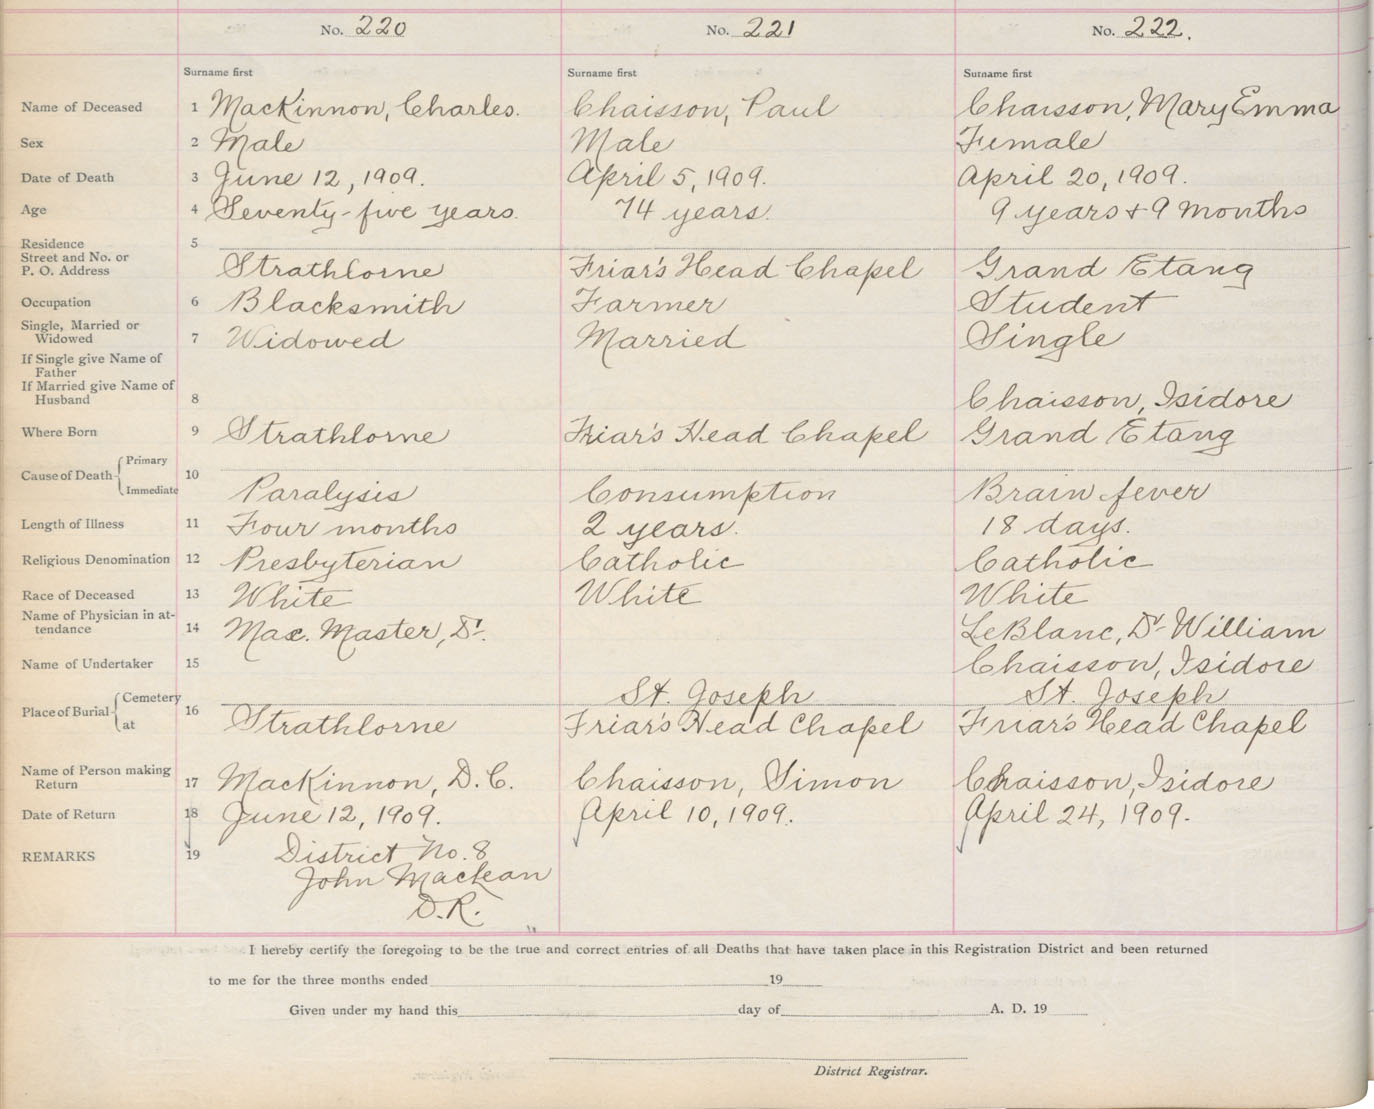 No. 220 No. 221 No. 222.
Surname first Surname first Surname first
Name of Deceased 1 MacKinnon, Charles. Chaisson, Paul Chaisson, Mary Emma
Sex 2 Male Male Female
Date of Death 3 June 12, 1909. April 5, 1909. April 20, 1909.
Age 4 Seventy-five years. 74 years. 9 years & 9 months
Residence 5
Street and No. or
P. O. Address Strathlorne Friar's Head Chapel Grand Etang
Occupation 6 Blacksmith Farmer Student
Single, Married or
Widowed 7 Widowed Married Single
If Single give Name of
Father
If Married give Name of
Husband 8 Chaisson, Isidore
Where Born 9 Strathlorne Friar's Head Chapel Grand Etang
Primary
Cause of Death 10
Immediate Paralysis Consumption Brain fever
Length of Illness 11 Four months 2 years. 18 days.
Religious Denomination 12 Presbyterian Catholic Catholic
Race of Deceased 13 White White White
Name of Physician in at-
tendance 14 Mac. Master, Dr. LeBlanc, Dr William
Name of Undertaker 15 Chaisson, Isidore
Cemetery St. Joseph St. Joseph
Place of Burial 16
at Strathlorne Friar's Head Chapel Friar's Head Chapel
Name of Person making
Return 17 MacKinnon, D. C. Chaisson, Simon Chaisson, Isidore
Date of Return 18 June 12, 1909. April 10, 1909. April 24, 1909.
REMARKS 19 District No. 8
John MacLean
D.R.
I hereby certify the foregoing to be the true and correct entries of all Deaths that have taken place in this Registration District and been returned
to me for the three months ended 19
Given under my hand this day of A. D. 19
District Registrar.